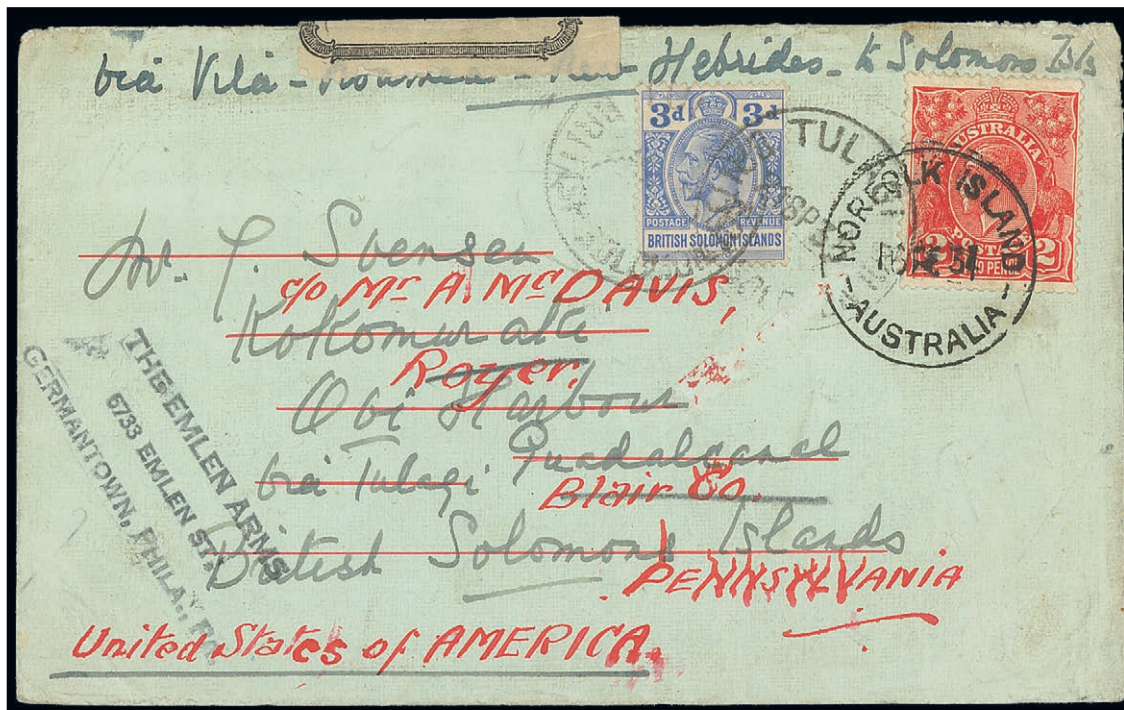 via Vila - Noumea - New Hebrides - to Solomons Isls
3d 3d
POSTAGE REVENUE
BRITISH SOLOMON ISLANDS
TULAGI
AUSTRALIA
POSTAGE
2 TWO PENCE 2
NORFOLK ISLAND
31
- AUSTRALIA -
Svensen
c/o Mr A. McDAVIS,
Royer.
Harbour
Guadalcanal
via Tulagi
Blair Co.
British Solomons Islands
PENNSYLVANIA
United States of AMERICA.
THE EMLEN ARMS
6733 EMLEN ST.
GERMANTOWN, PHILA., PA.